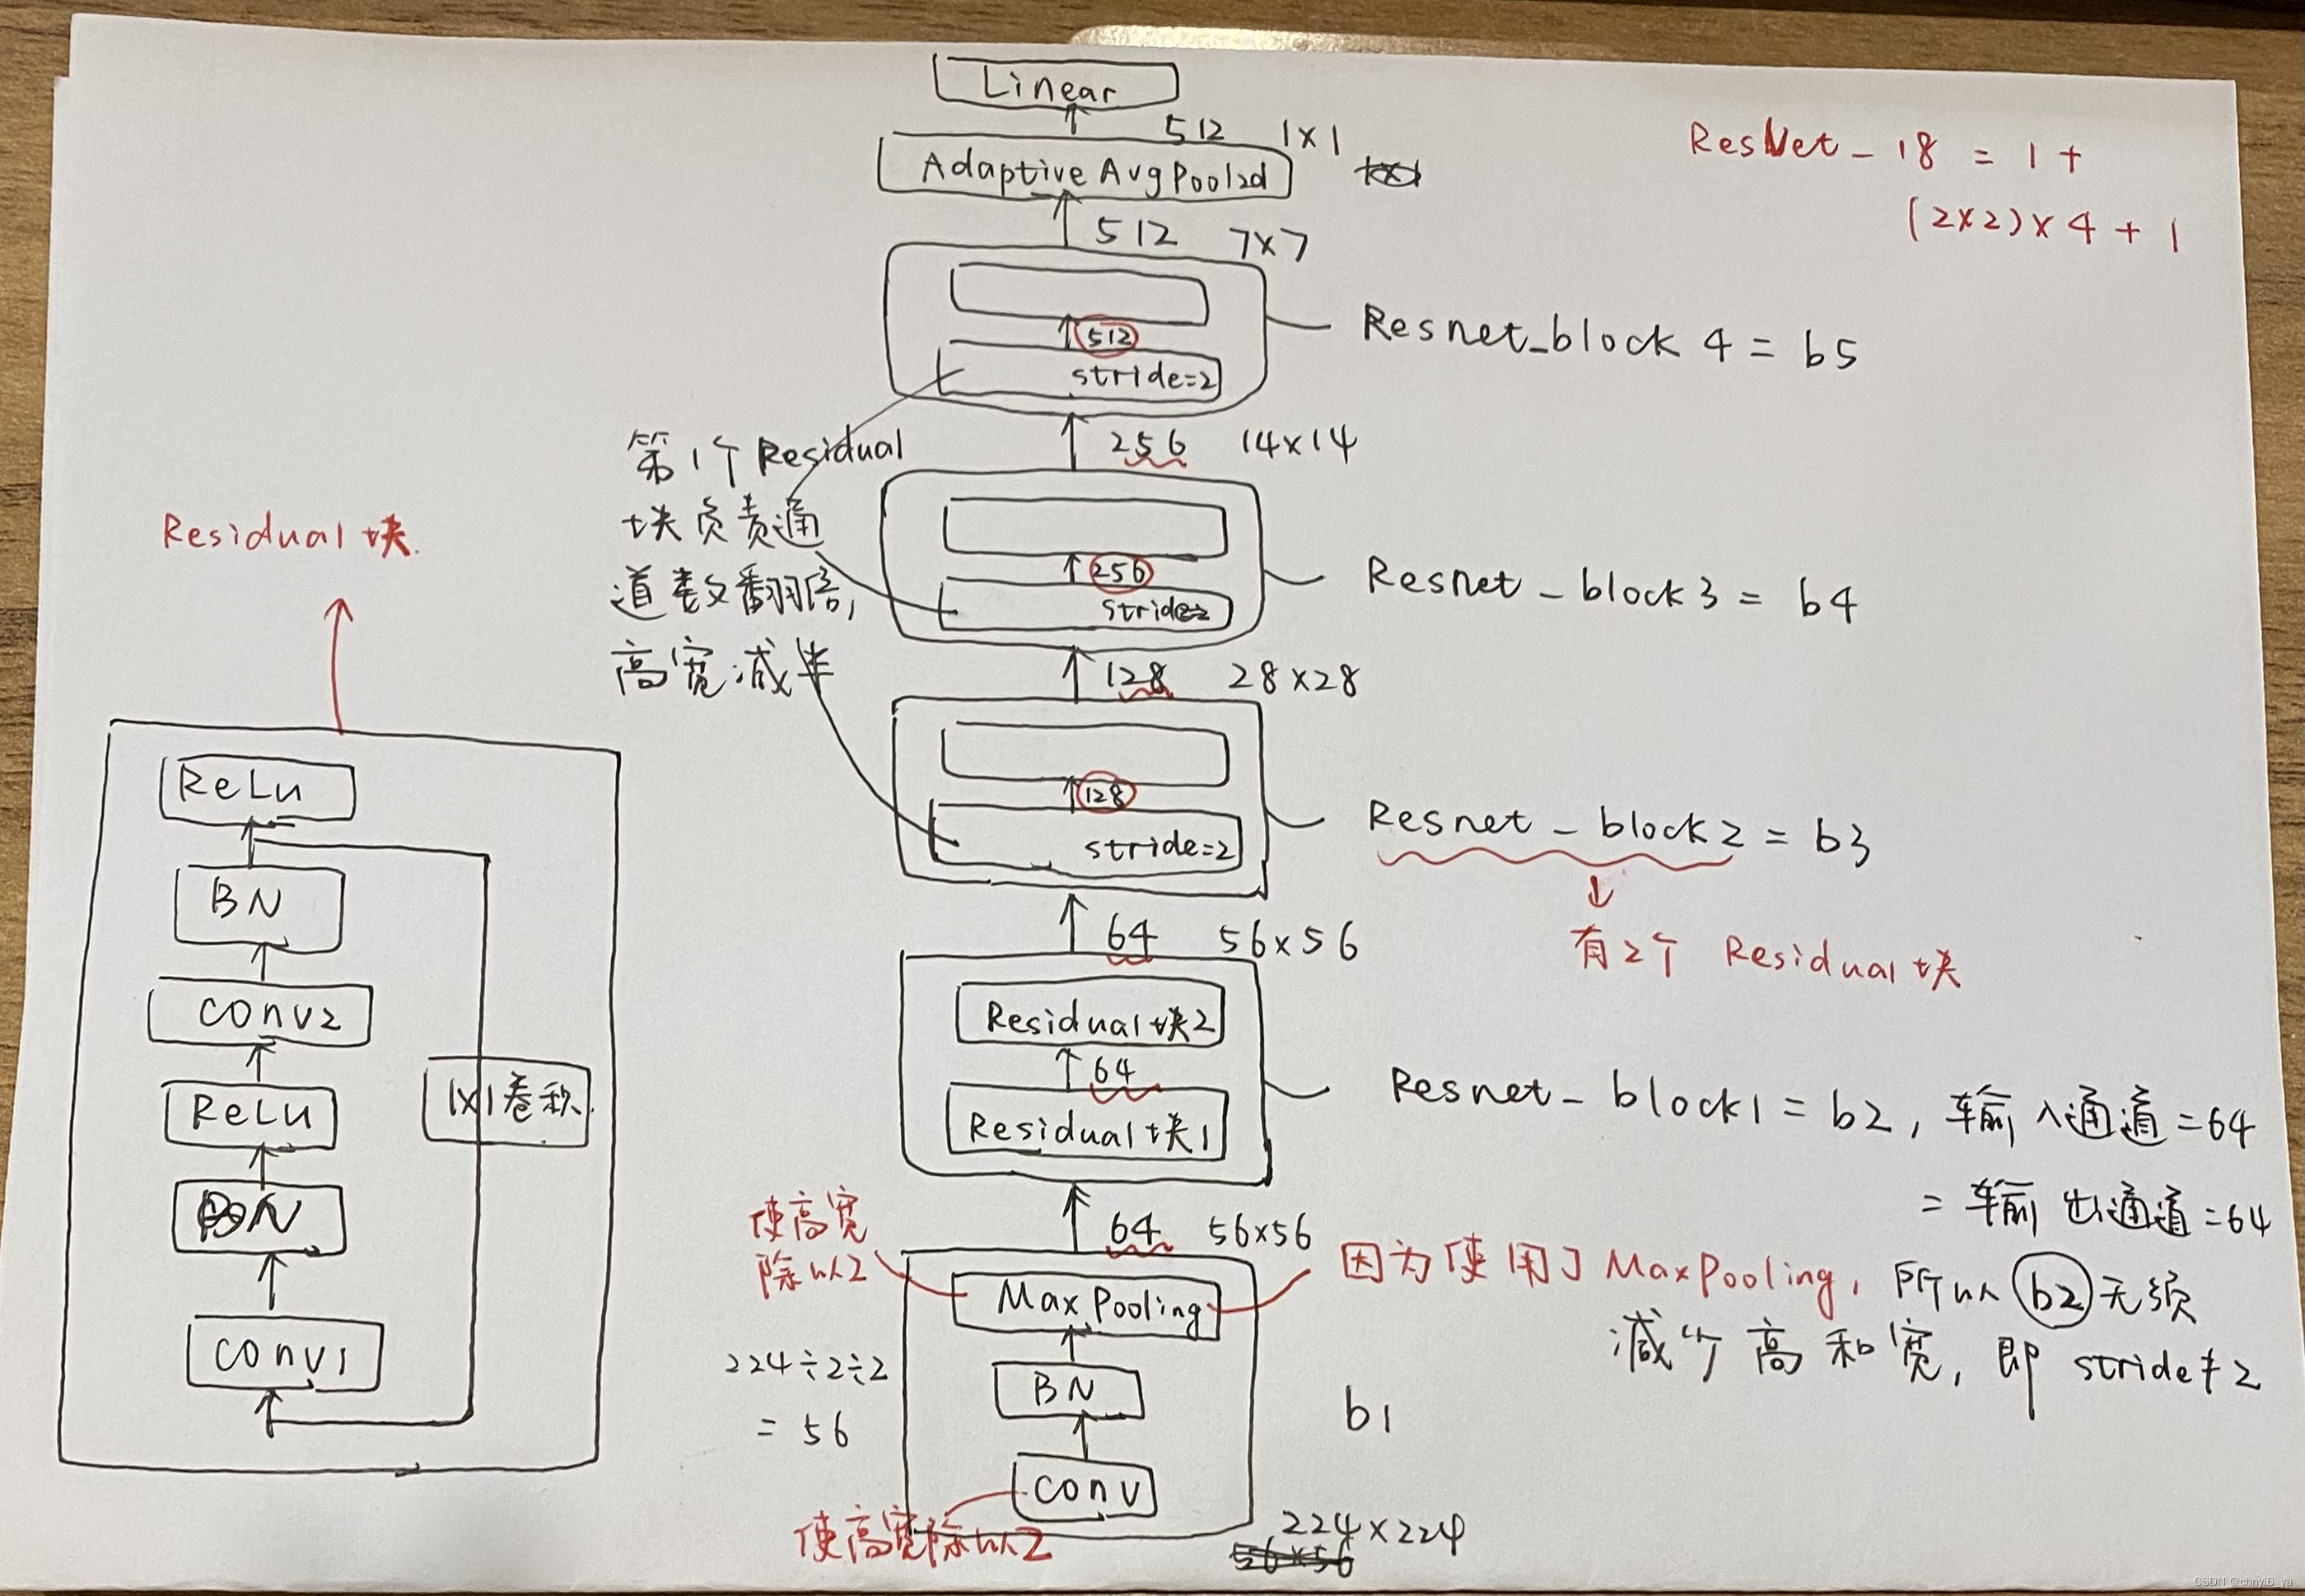 Linear
512 1×1
Adaptive AvgPool2d
ResNet-18 = 1+
(2×2)×4+1
512 7×7
512
stride=2
Resnet_block 4 = b5
256 14×14
第1个Residual
块负责通
道数翻倍,
高宽减半
256
stride=2
Resnet_block3 = b4
128 28×28
128
stride=2
Resnet_block2 = b3
有2个 Residual块
64 56×56
Residual块2
64
Residual块1
Resnet_block1 = b2, 输入通道=64
= 输出通道=64
64 56×56
使高宽
除以2
Max Pooling
因为使用了MaxPooling, 所以b2无须
减少高和宽, 即 stride≠2
BN
224÷2÷2
= 56
b1
conv
使高宽除以2
224×224
56×56
Residual块
ReLu
BN
conv2
1×1卷积
ReLu
BN
conv1
CSDN @chnyi6_ya